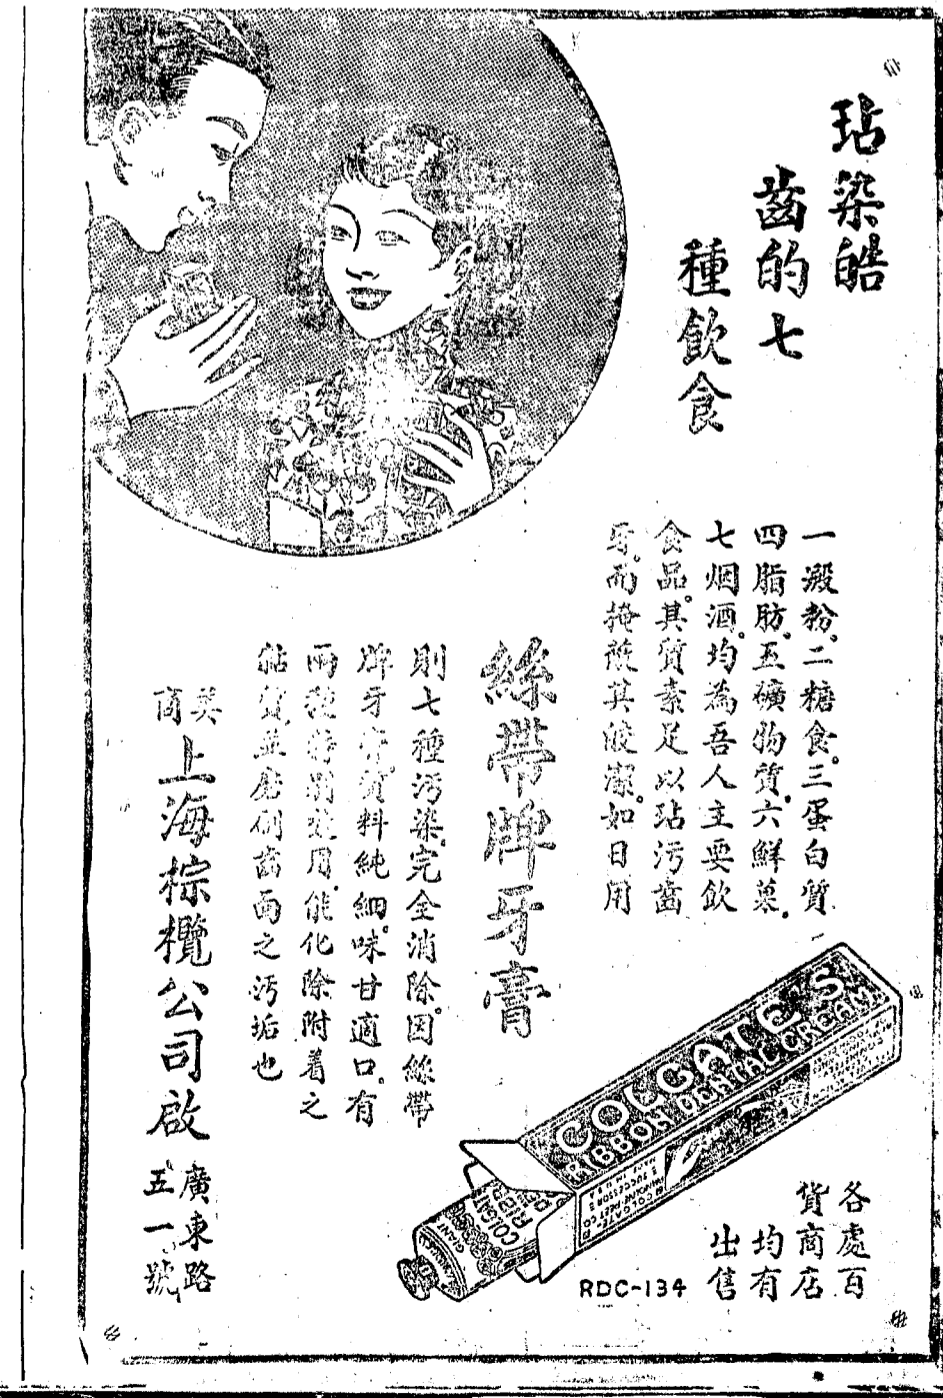 玷染皓
齒的七
種飲食
一澱粉。二糖食。三蛋白質
四脂肪。五礦物質。六鮮菓。
七烟酒。均為吾人主要飲
食品。其質素足以玷污齒
牙。而掩蔽其皎潔。如日用
絲帶牌牙膏
則七種污染。完全消除。因絲帶
牌牙膏。質料純細。味甘適口。有
兩種特別效用。能化除附着之
黏質。並磨刷齒面之污垢也
英商
上海棕欖公司啟
廣東路
五一號
COLGATE'S
RIBBON DENTAL CREAM
COLGATE
RDC-134
各處百
貨商店
均有
出售